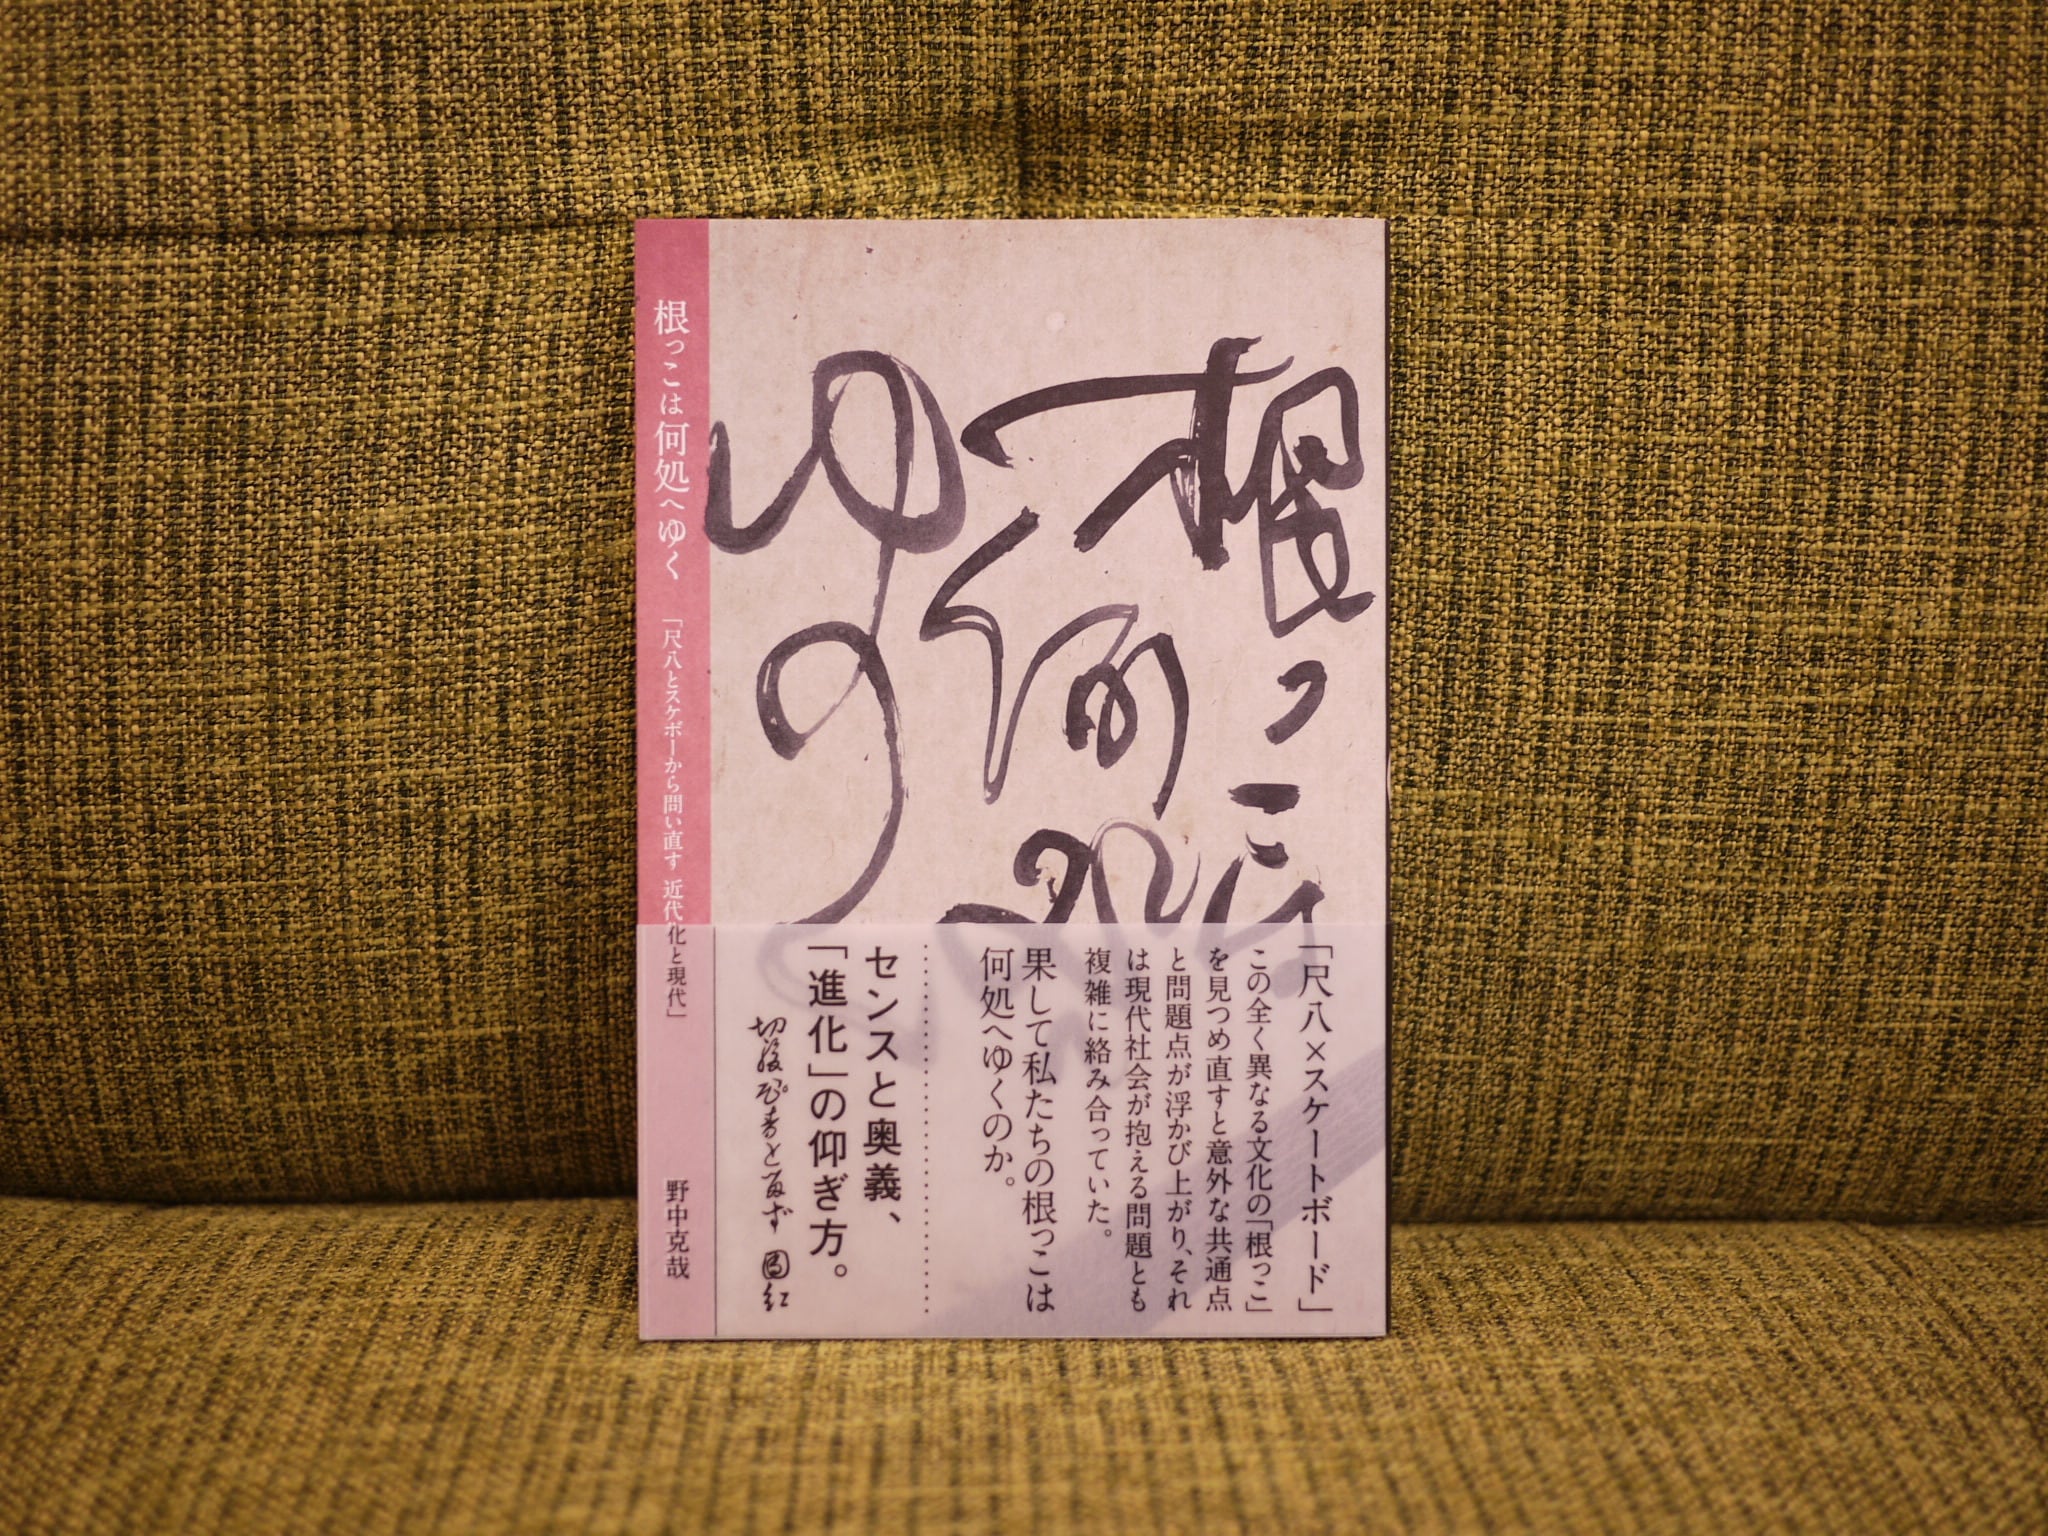 根っこは
何処へ
ゆく
根っこは何処へゆく
「尺八とスケボーから問い直す 近代化と現代」
野中克哉
「尺八×スケートボード」
この全く異なる文化の「根っこ」
を見つめ直すと意外な共通点
と問題点が浮かび上がり、それ
は現代社会が抱える問題とも
複雑に絡み合っていた。
果して私たちの根っこは
何処へゆくのか。
センスと奥義、
「進化」の仰ぎ方。